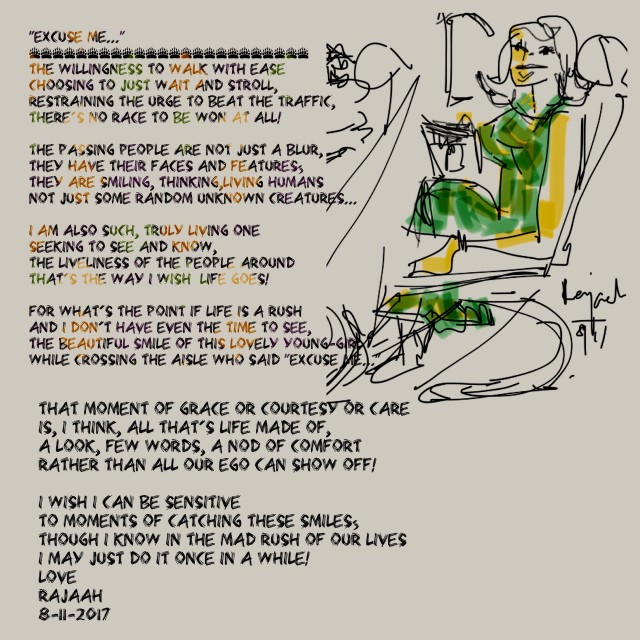 "EXCUSE ME..."
THE WILLINGNESS TO WALK WITH EASE
CHOOSING TO JUST WAIT AND STROLL,
RESTRAINING THE URGE TO BEAT THE TRAFFIC,
THERE'S NO RACE TO BE WON AT ALL!
THE PASSING PEOPLE ARE NOT JUST A BLUR,
THEY HAVE THEIR FACES AND FEATURES;
THEY ARE SMILING, THINKING,LIVING HUMANS
NOT JUST SOME RANDOM UNKNOWN CREATURES...
I AM ALSO SUCH, TRULY LIVING ONE
SEEKING TO SEE AND KNOW,
THE LIVELINESS OF THE PEOPLE AROUND
THAT'S THE WAY I WISH LIFE GOES!
FOR WHAT'S THE POINT IF LIFE IS A RUSH
AND I DON'T HAVE EVEN THE TIME TO SEE,
THE BEAUTIFUL SMILE OF THIS LOVELY YOUNG-GIRL
WHILE CROSSING THE AISLE WHO SAID "EXCUSE ME..."
THAT MOMENT OF GRACE OR COURTESY OR CARE
IS, I THINK, ALL THAT'S LIFE MADE OF,
A LOOK, FEW WORDS, A NOD OF COMFORT
RATHER THAN ALL OUR EGO CAN SHOW OFF!
I WISH I CAN BE SENSITIVE
TO MOMENTS OF CATCHING THESE SMILES;
THOUGH I KNOW IN THE MAD RUSH OF OUR LIVES
I MAY JUST DO IT ONCE IN A WHILE!
LOVE
RAJAAH
8-11-2017